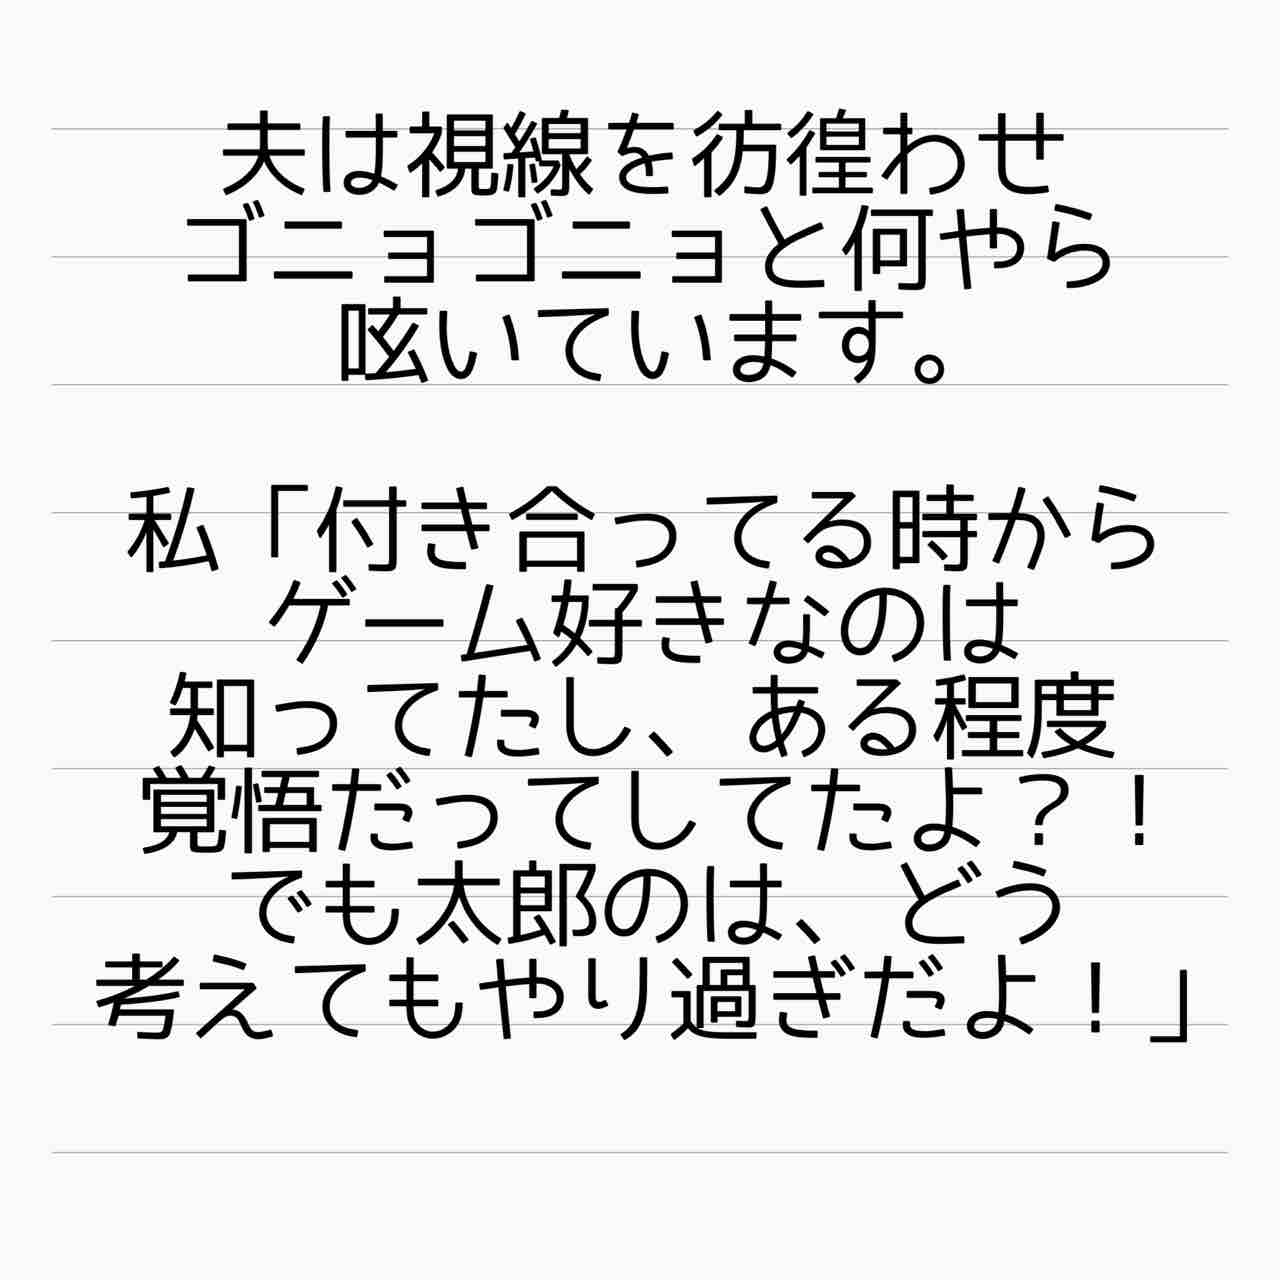 夫は視線を彷徨わせ
ゴニョゴニョと何やら
呟いています。
私「付き合ってる時から
ゲーム好きなのは
知ってたし、ある程度
覚悟だってしてたよ？！
でも太郎のは、どう
考えてもやり過ぎだよ！」